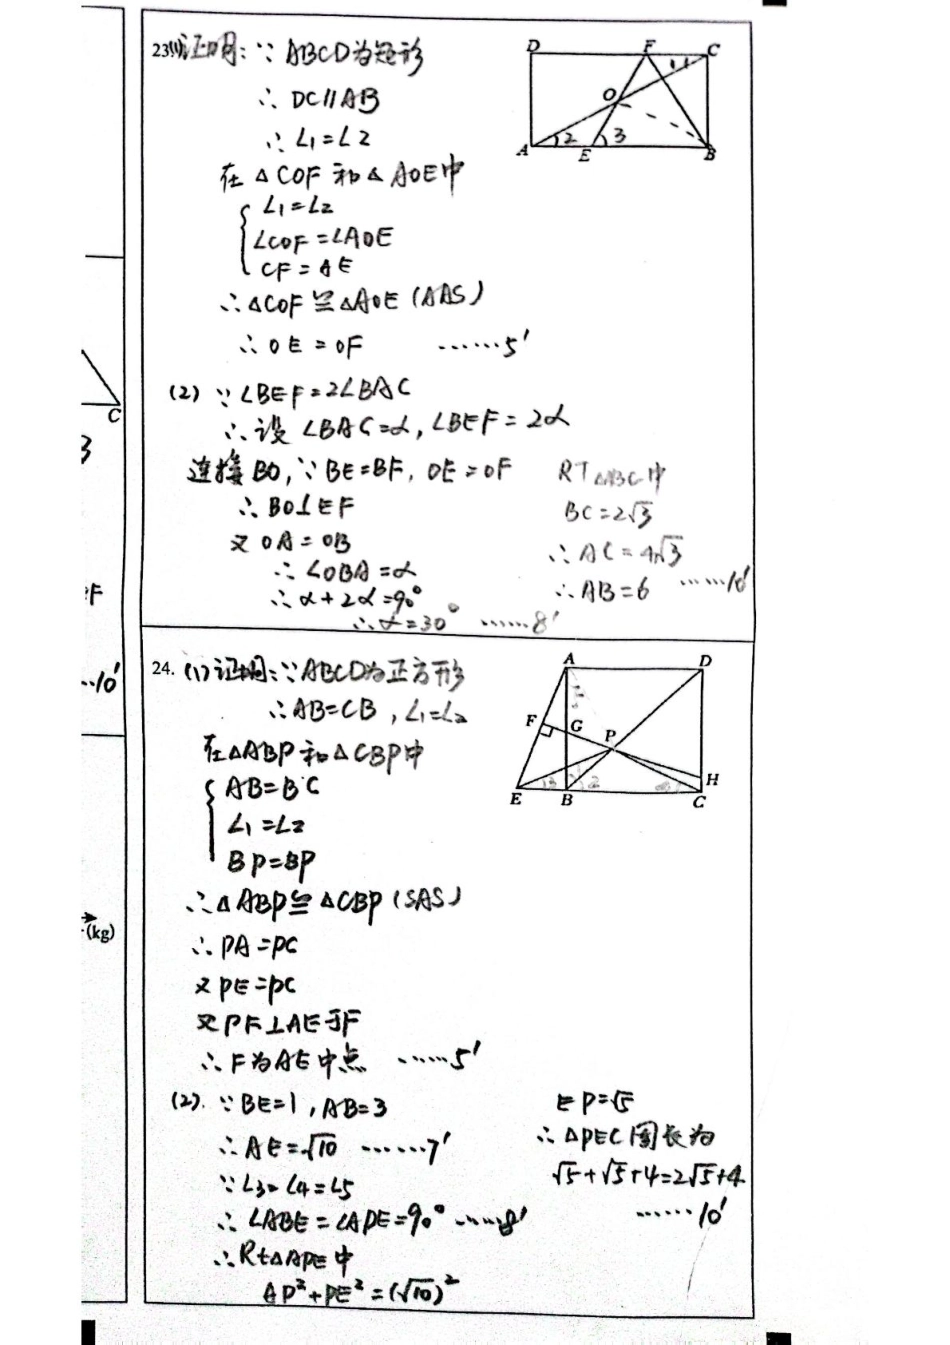 C
3
F
...10′
(kg)
23.(1)证明:∵ ABCD为矩形
∴ DC∥AB
∴ ∠1=∠2
在△COF 和△AOE中
∠1=∠2
∠COF=∠AOE
CF=AE
∴△COF≌△AOE(AAS)
∴OE=OF ......5′
(2) ∵∠BEF=2∠BAC
∴设∠BAC=α,∠BEF=2α
连接BO,∵BE=BF,OE=OF
∴BO⊥EF
又OA=OB
∴∠OBA=α
∴α+2α=90°
∴α=30° ......8′
RT△ABC中
BC=2√3
∴AC=4√3
∴AB=6 ......10′
D F C
1
O
2 3
A E B
24. (1)证明:∵ABCD为正方形
∴AB=CB,∠1=∠2
在△ABP和△CBP中
AB=BC
∠1=∠2
BP=BP
∴△ABP≌△CBP(SAS)
∴PA=PC
又PE=PC
又PF⊥AE于F
∴F为AE中点 ......5′
(2). ∵BE=1,AB=3
∴AE=√10 ......7′
∵∠3=∠4=∠5
∴∠ABE=∠APE=90° ......8′
∴Rt△APE中
AP²+PE²=(√10)²
EP=√5
∴△PEC周长为
√5+√5+4=2√5+4
......10′
A D
F G P
3 2 H
E B C